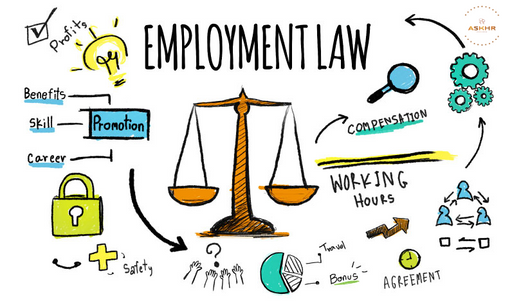 EMPLOYMENT LAW
ASKHR
Profits
Benefits
Skill
Career
Promotion
COMPENSATION
WORKING
HOURS
Safety
?
Travel
Bonus
AGREEMENT